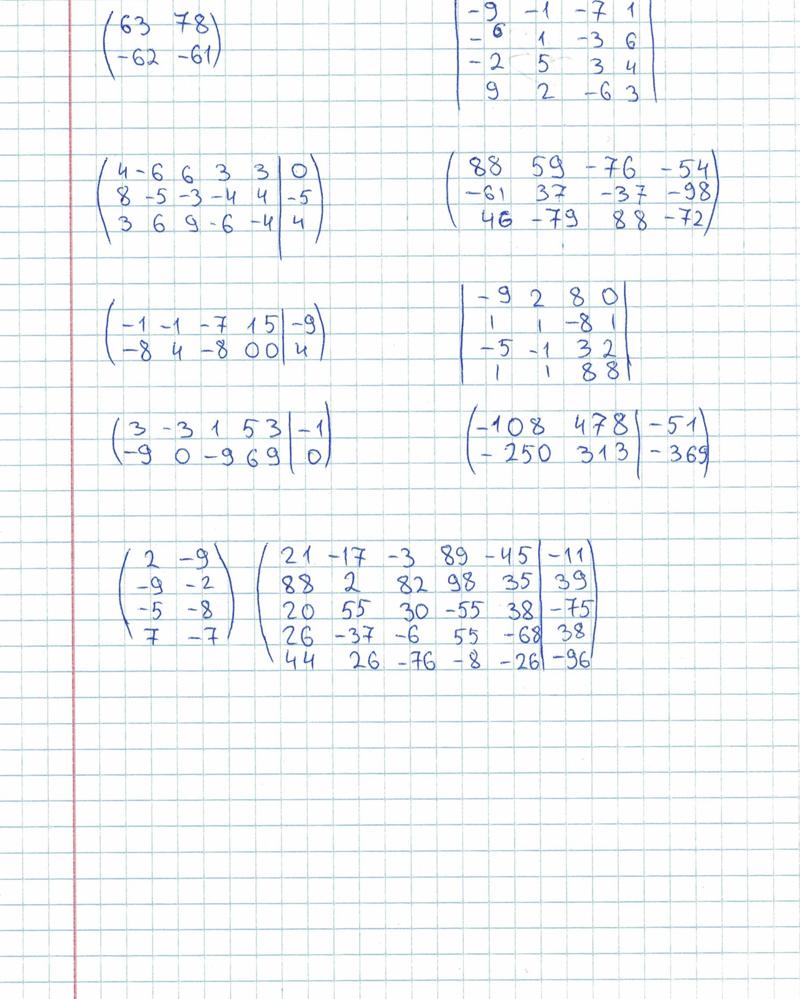 63 78
-62 -61
-9 -1 -7 1
-6 1 -3 6
-2 5 3 4
9 2 -6 3
4 -6 6 3 3 | 0
8 -5 -3 -4 4 | -5
3 6 9 -6 -4 | 4
88 59 -76 -54
-61 37 -37 -98
46 -79 88 -72
-1 -1 -7 1 5 | -9
-8 4 -8 0 0 | 4
-9 2 8 0
1 1 -8 1
-5 -1 3 2
1 1 8 8
3 -3 1 5 3 | -1
-9 0 -9 6 9 | 0
-108 478 | -51
-250 313 | -369
2 -9
-9 -2
-5 -8
7 -7
21 -17 -3 89 -45 | -11
88 2 82 98 35 | 39
20 55 30 -55 38 | -75
26 -37 -6 55 -68 | 38
44 26 -76 -8 -26 | -96